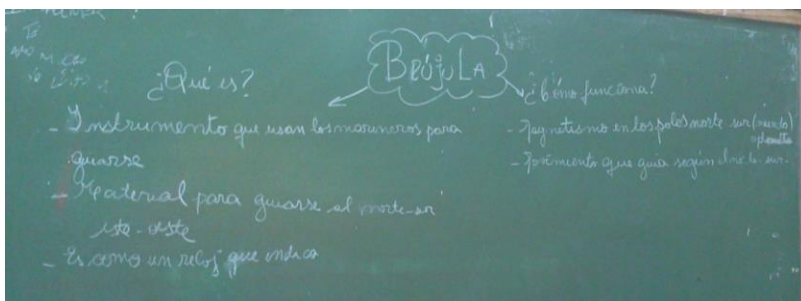 BRÚJULA
¿Qué es?
- Instrumento que usan los marineros para
guiarse
- Material para guiarse al norte-sur
este-oeste
- Es como un reloj que indica
¿Cómo funciona?
- Magnetismo en los polos norte sur (mundo)
- Movimiento que guía según el norte sur.